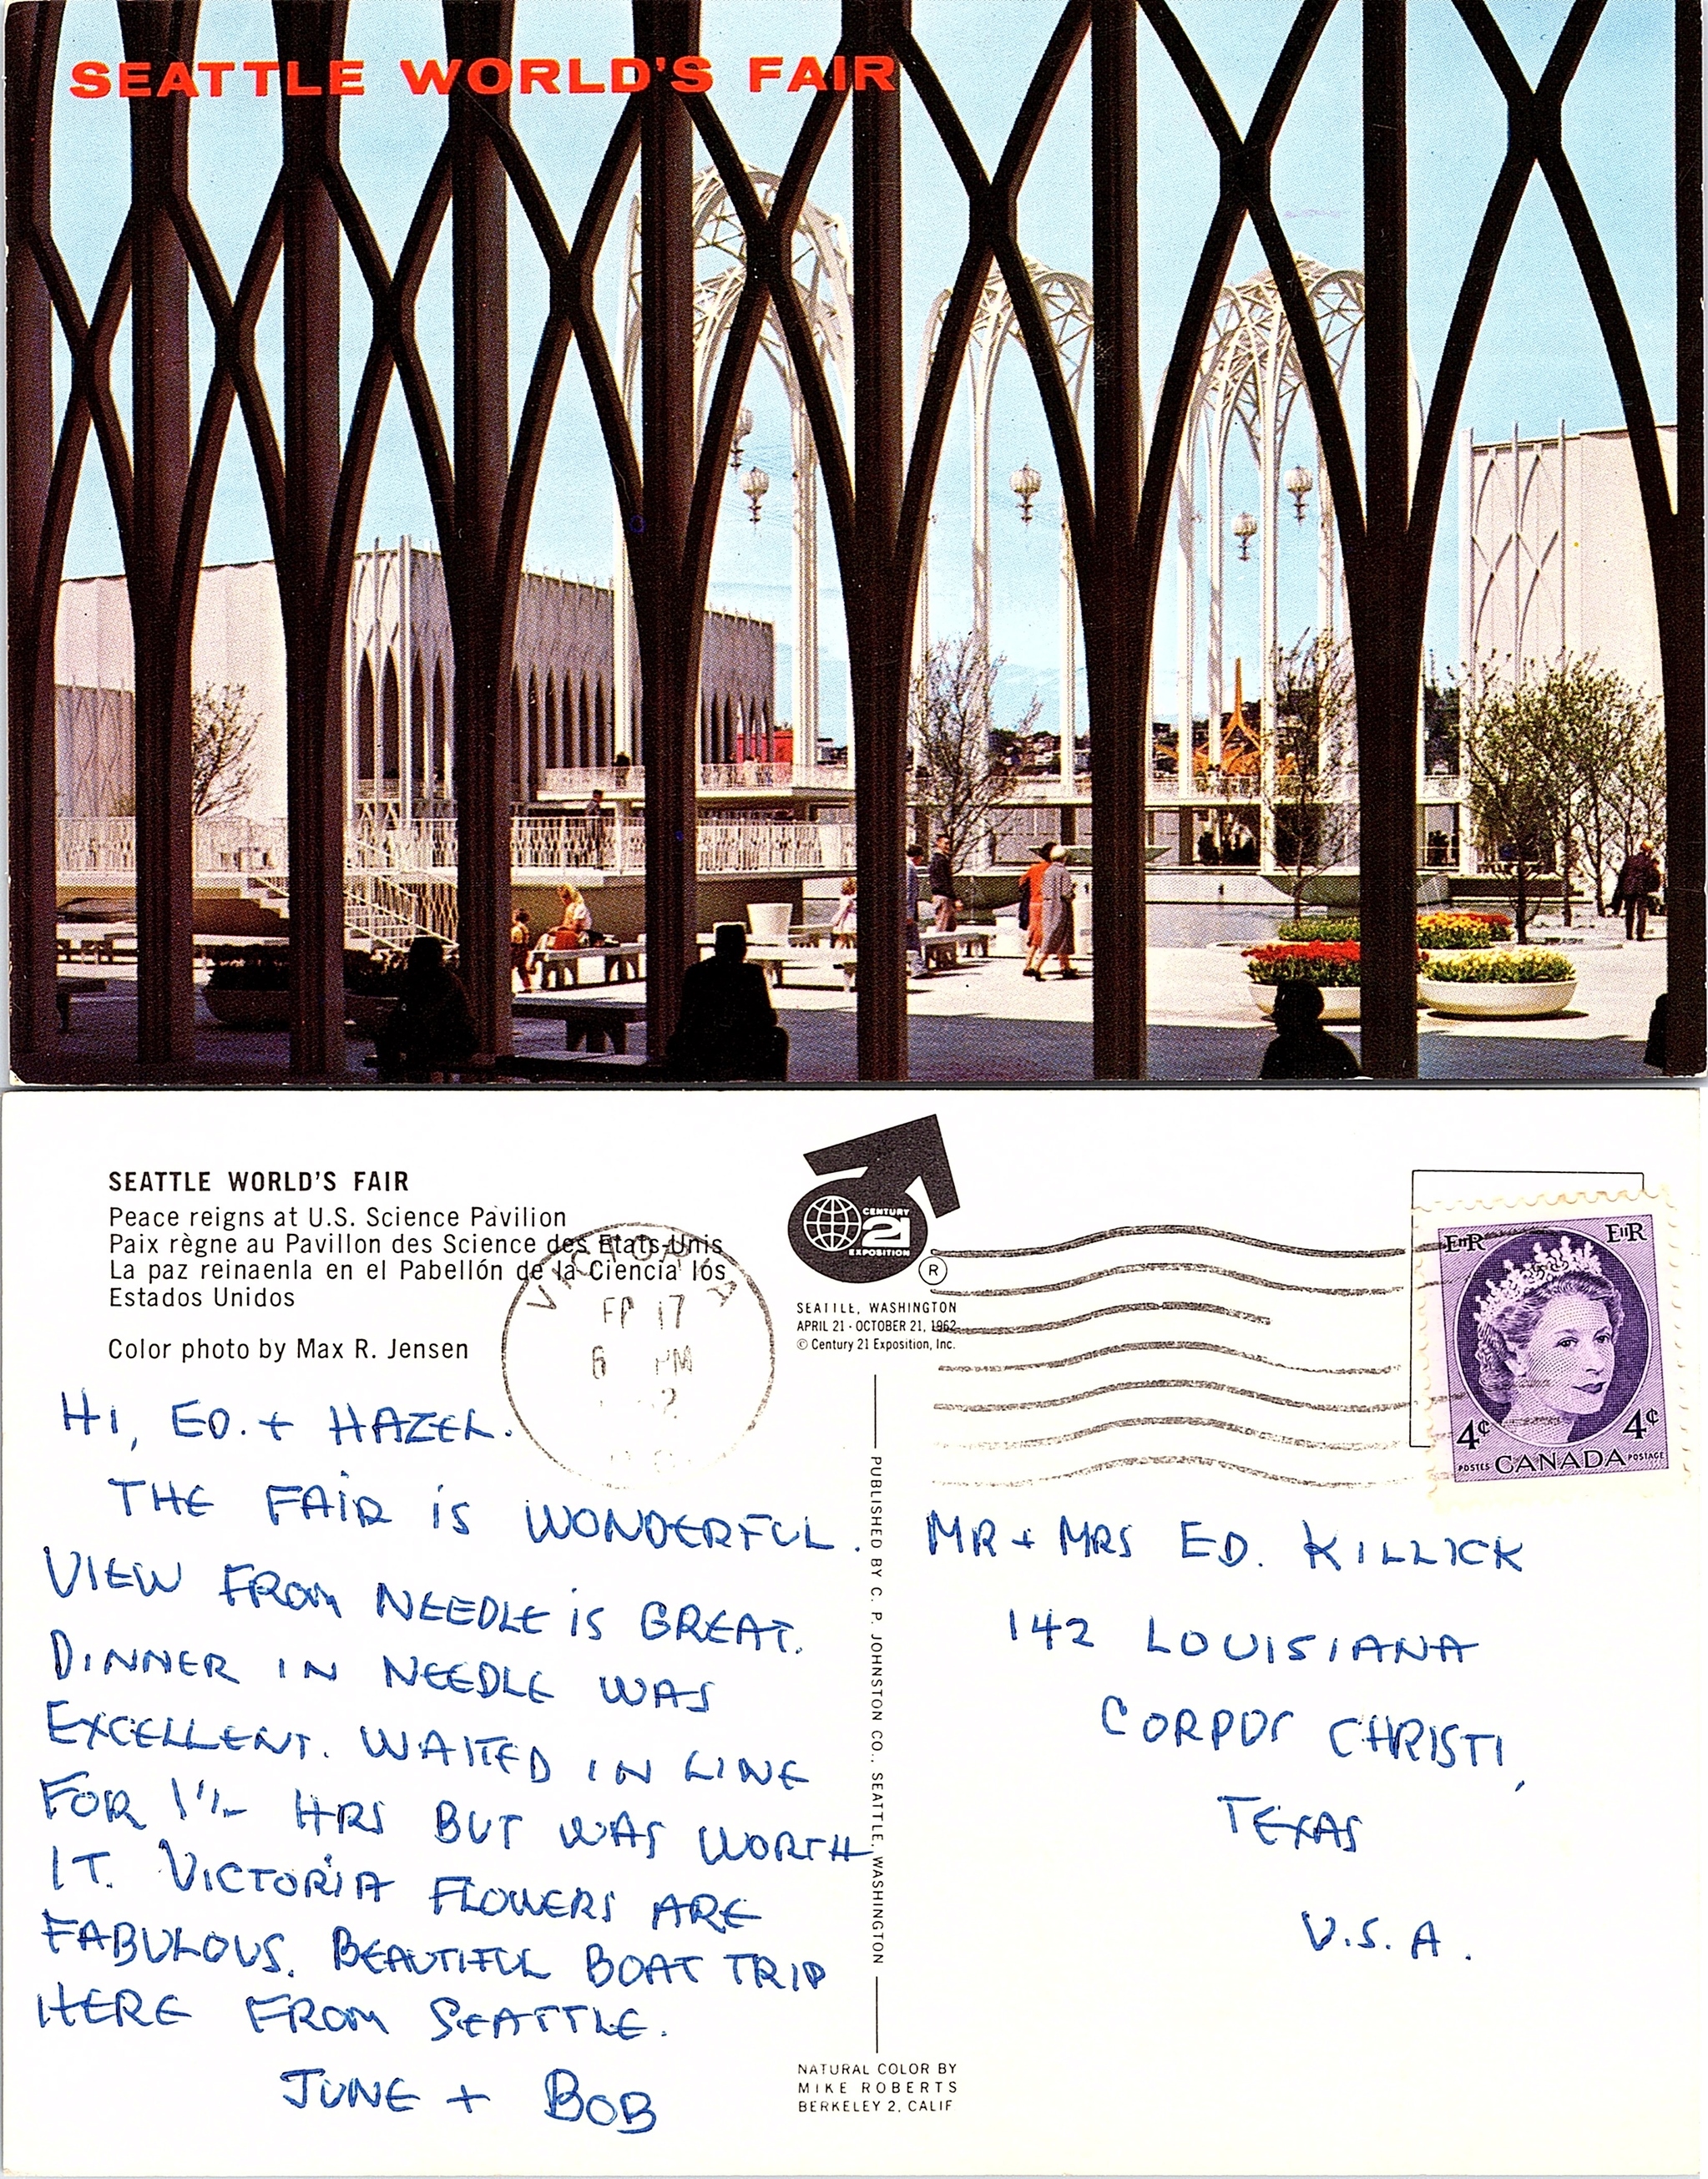 SEATTLE WORLD'S FAIR
SEATTLE WORLD'S FAIR
Peace reigns at U.S. Science Pavilion
Paix règne au Pavillon des Science des Etats-Unis
La paz reinaenla en el Pabellón de la Ciencia lós
Estados Unidos
Color photo by Max R. Jensen
CENTURY
21
EXPOSITION
®
SEATTLE, WASHINGTON
APRIL 21 - OCTOBER 21, 1962
© Century 21 Exposition, Inc.
17
6 PM
2
EIIR EIIR
4¢ 4¢
POSTES CANADA POSTAGE
HI, ED. + HAZEL.
THE FAIR IS WONDERFUL.
VIEW FROM NEEDLE IS GREAT.
DINNER IN NEEDLE WAS
EXCELLENT. WAITED IN LINE
FOR 1 1/2 HRS BUT WAS WORTH
IT. VICTORIA FLOWERS ARE
FABULOUS. BEAUTIFUL BOAT TRIP
HERE FROM SEATTLE.
JUNE + BOB
PUBLISHED BY C. P. JOHNSTON CO., SEATTLE, WASHINGTON
MR + MRS ED. KILLICK
142 LOUISIANA
CORPUS CHRISTI,
TEXAS
U.S.A.
NATURAL COLOR BY
MIKE ROBERTS
BERKELEY 2, CALIF